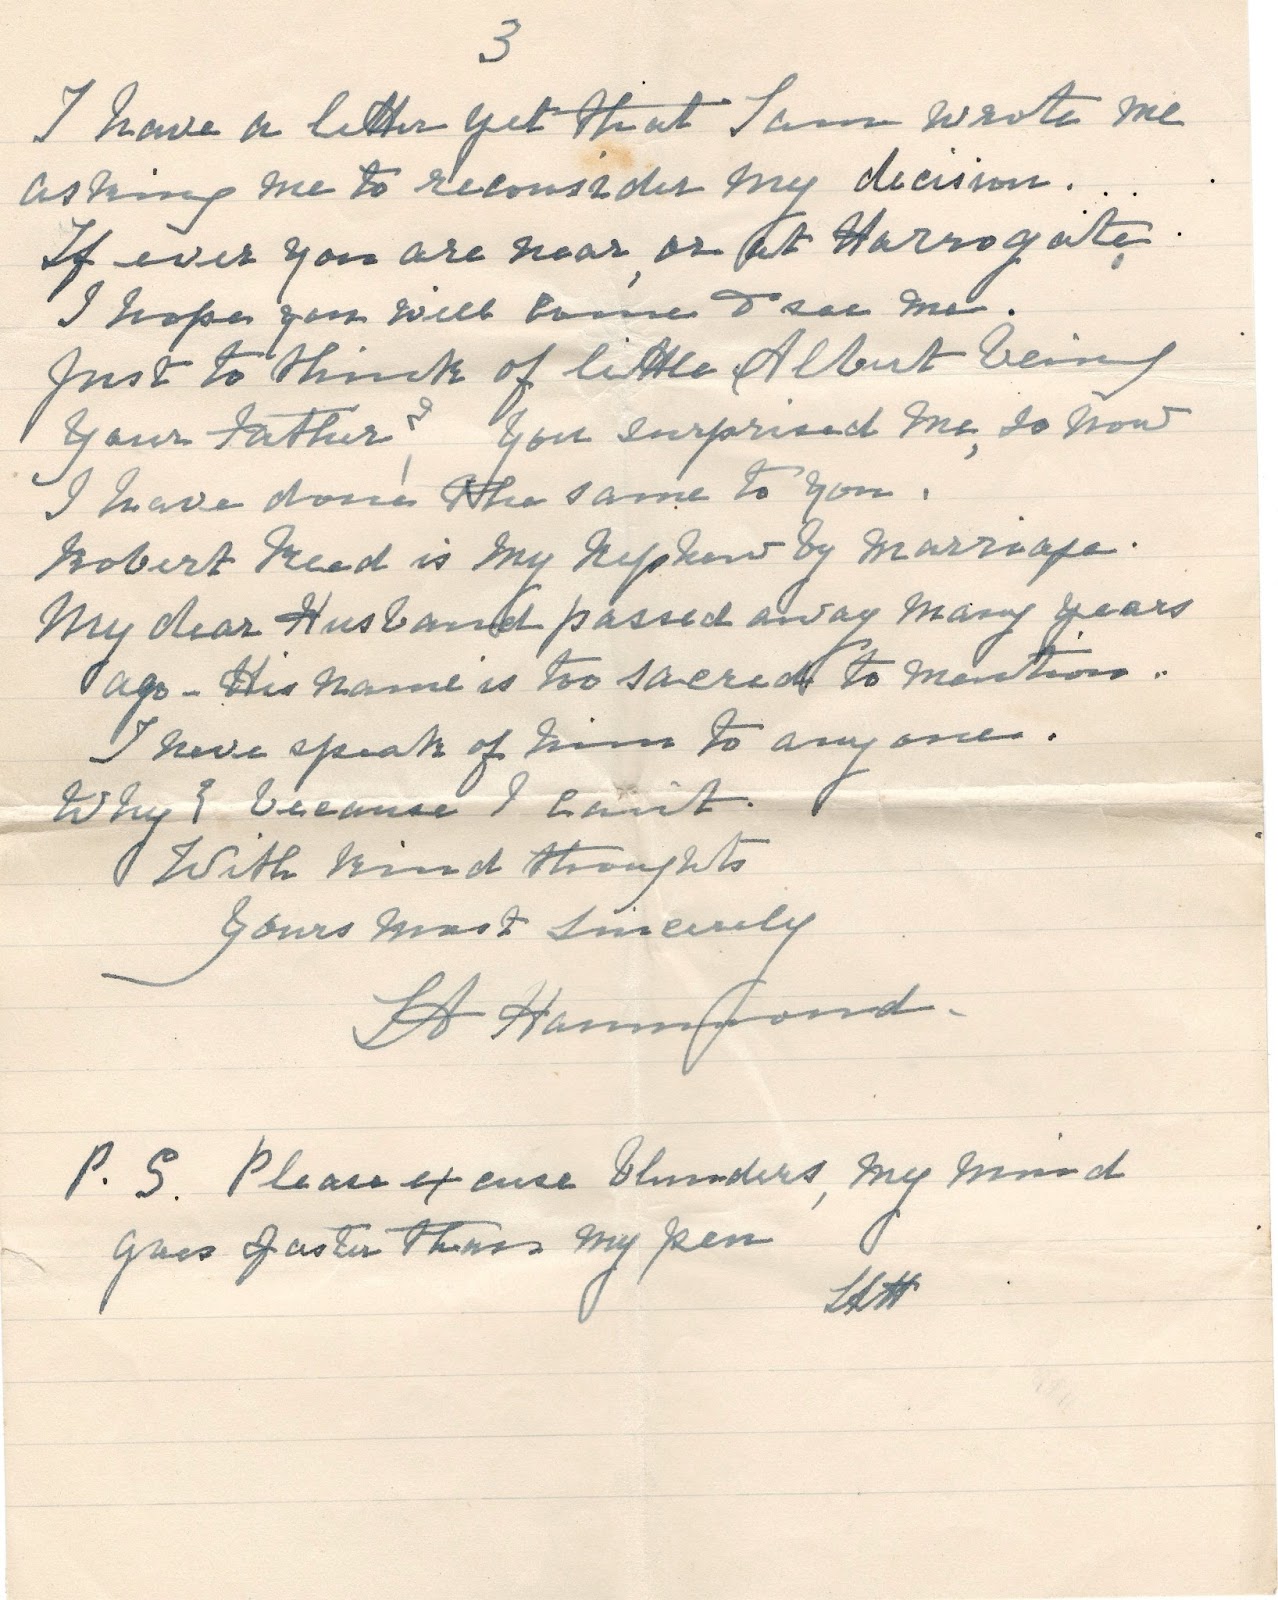 3
I have a letter yet that Sam wrote me
asking me to reconsider my decision.
If ever you are near, or at Harrogate,
I hope you will come & see me.
Just to think of little Albert being
your Father? You surprised me, so now
I have done the same to you.
Robert Reed is my Nephew by Marriage.
My dear Husband passed away many years
ago - His name is too sacred to mention.
I neve speak of him to anyone.
Why? because I can't.
With kind thoughts
Yours most sincerely
LA Hammond.
P. S. Please excuse blunders, my mind
goes faster than my pen
LAH